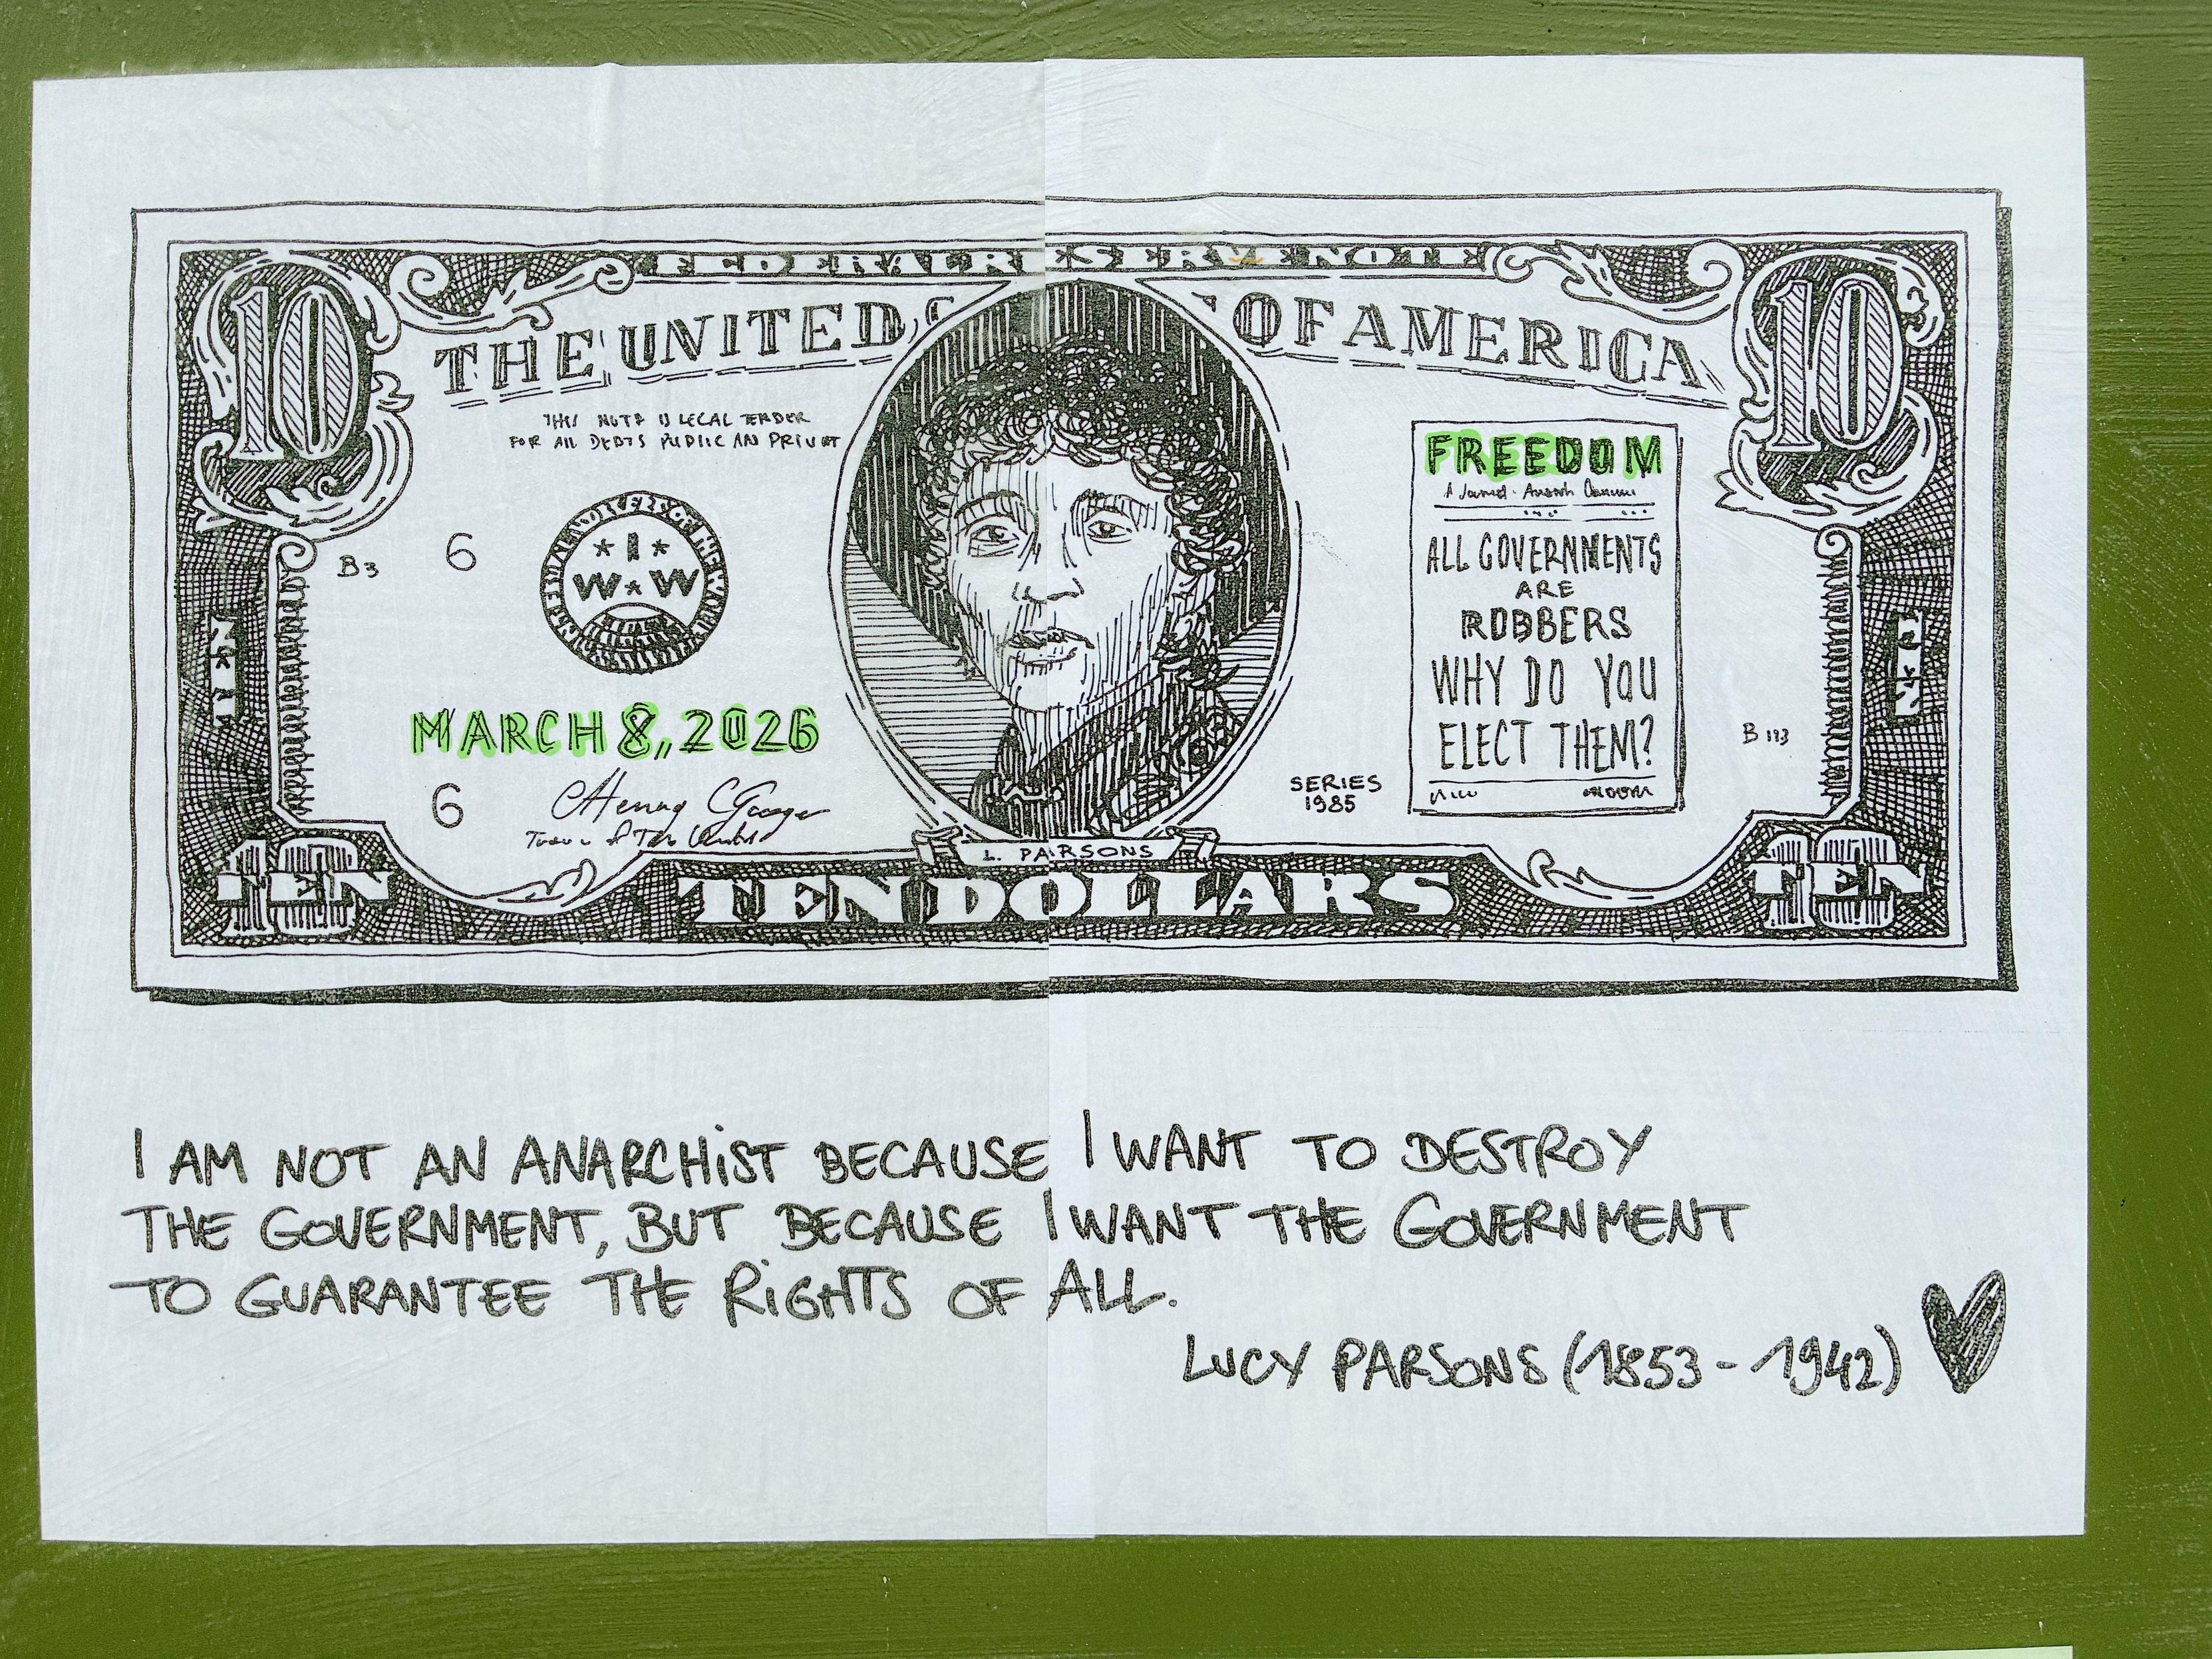 FEDERAL RESERVE NOTE
10
10
THE UNITED OF AMERICA
THIS NOTE IS LEGAL TENDER
FOR All DEBTS PUBLIC AN PRIVAT
B3
6
INDUSTRIAL WORKERS OF THE WORLD
I
W W
MARCH 8, 2026
6
FREEDOM
ALL GOVERNMENTS
ARE
ROBBERS
WHY DO YOU
ELECT THEM?
B 193
SERIES
1985
L. PARSONS
TEN
TEN DOLLARS
TEN
I AM NOT AN ANARCHiST BECAUSE I WANT TO DESTROY
THE GOVERNMENT, BUT BECAUSE I WANT THE GOVERNMENT
TO GUARANTEE THE RiGHTS OF ALL.
LUCY PARSONS (1853 - 1942)